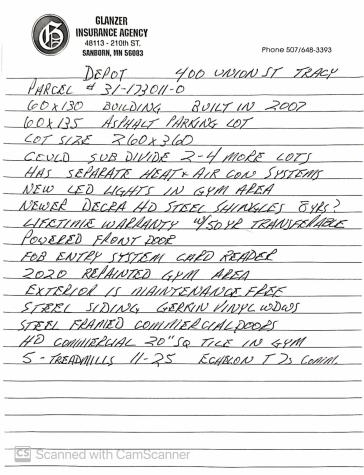 GLANZER
INSURANCE AGENCY
48113 - 210th ST.
SANBORN, MN 56083
Phone 507/648-3393
DEPOT 400 UNION ST TRACY
PARCEL # 31-173011-0
60X130 BUILDING BUILT IN 2007
60X135 ASPHALT PARKING LOT
LOT SIZE 260X360
COULD SUB DIVIDE 2-4 MORE LOTS
HAS SEPARATE HEAT & AIR CON SYSTEMS
NEW LED LIGHTS IN GYM AREA
NEWER DECRA HD STEEL SHINGLES 8 YRS?
LIFETIME WARRANTY W/50 YR TRANSFERABLE
POWERED FRONT DOOR
FOB ENTRY SYSTEM CARD READER
2020 REPAINTED GYM AREA
EXTERIOR IS MAINTENANCE FREE
STEEL SIDING GERKIN VINYL WDWS
STEEL FRAMED COMMERCIAL DOORS
HD COMMERCIAL 20" SQ TILE IN GYM
5 - TREADMILLS 11-25 ECHELON T 7s COMM.
CS Scanned with CamScanner